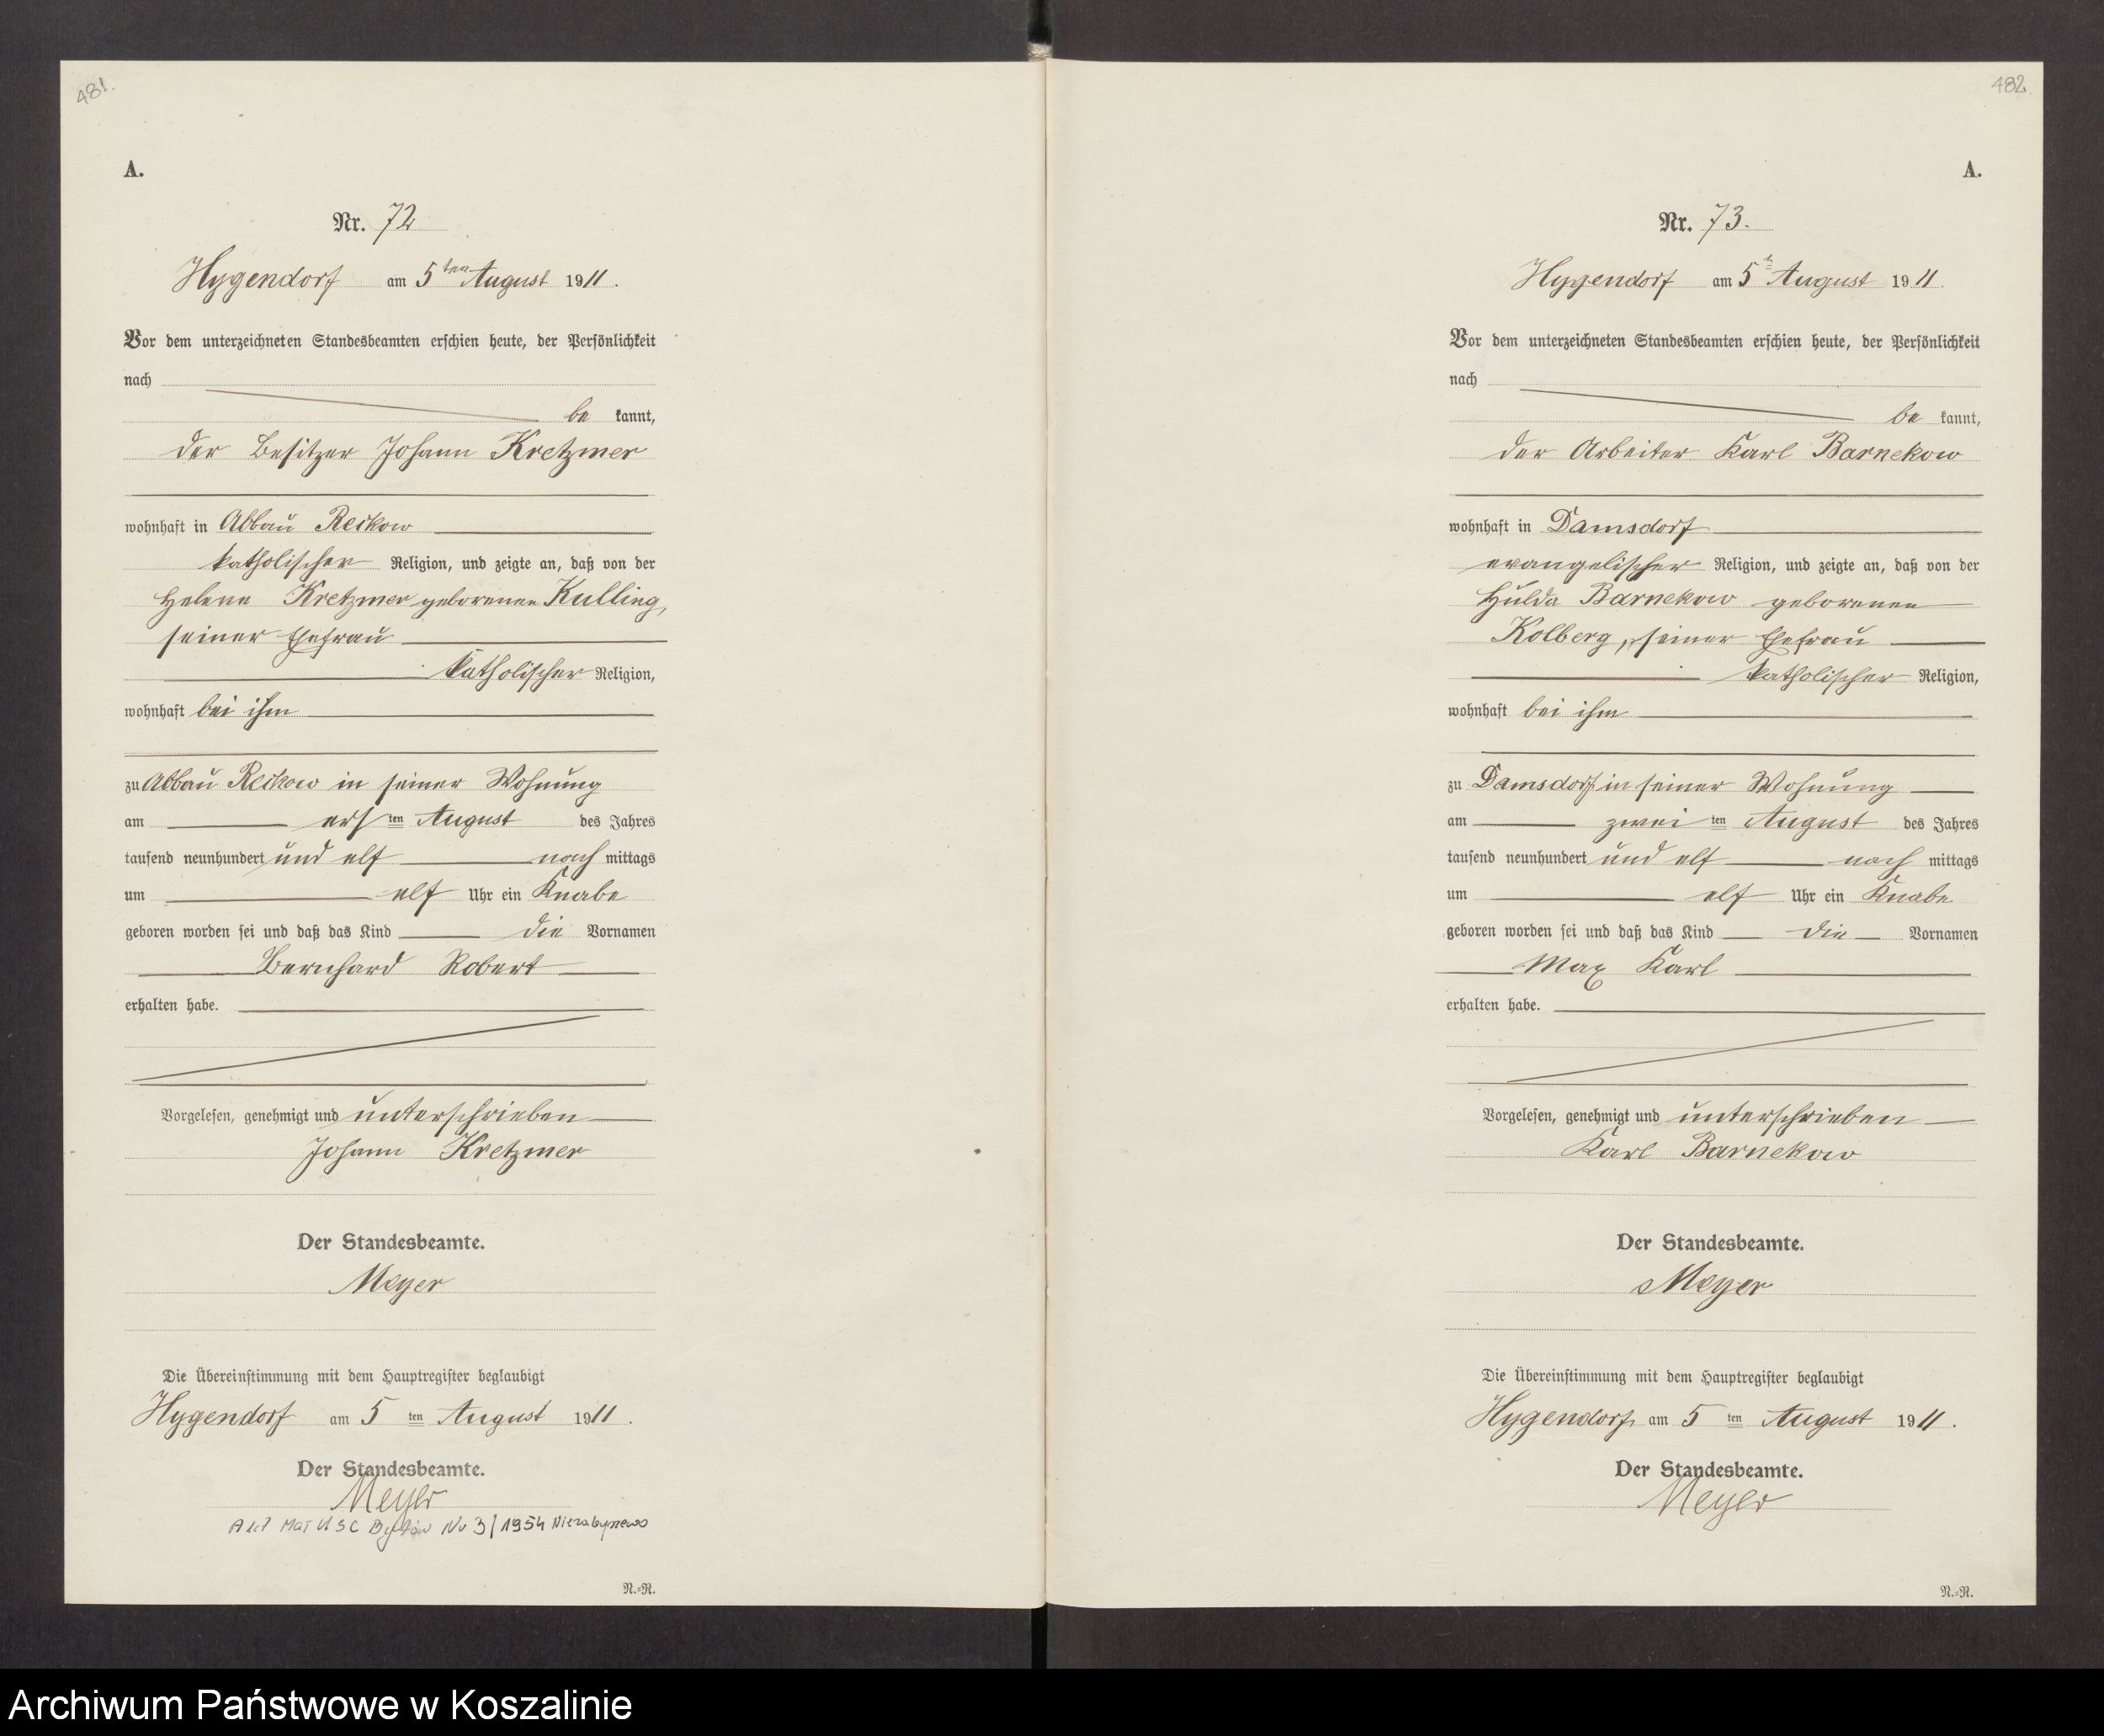 481.
A.
Nr. 72
Hygendorf am 5ten August 1911.
Vor dem unterzeichneten Standesbeamten erschien heute, der Persönlichkeit
nach
be kannt,
der Besitzer Johann Kretzmer
wohnhaft in Abbau Reckow
katholischer Religion, und zeigte an, daß von der
Helene Kretzmer geborenen Kulling,
seiner Ehefrau
katholischer Religion,
wohnhaft bei ihm
zu Abbau Reckow in seiner Wohnung
am ersten August des Jahres
tausend neunhundert und elf nach mittags
um elf Uhr ein Knabe
geboren worden sei und daß das Kind die Vornamen
Bernhard Robert
erhalten habe.
Vorgelesen, genehmigt und unterschrieben
Johann Kretzmer
Der Standesbeamte.
Meyer
Die Übereinstimmung mit dem Hauptregister beglaubigt
Hygendorf am 5 ten August 1911.
Der Standesbeamte.
Meyer
USC Bytów Nr 3/1954
N.=R.
482.
A.
Nr. 73.
Hygendorf am 5 August 1911.
Vor dem unterzeichneten Standesbeamten erschien heute, der Persönlichkeit
nach
be kannt,
der Arbeiter Karl Barnekow
wohnhaft in Damsdorf
evangelischer Religion, und zeigte an, daß von der
Hulda Barnekow geborenen
Kolberg, seiner Ehefrau
katholischer Religion,
wohnhaft bei ihm
zu Damsdorf in seiner Wohnung
am zwei ten August des Jahres
tausend neunhundert und elf nach mittags
um elf Uhr ein Knabe
geboren worden sei und daß das Kind die Vornamen
Max Karl
erhalten habe.
Vorgelesen, genehmigt und unterschrieben
Karl Barnekow
Der Standesbeamte.
Meyer
Die Übereinstimmung mit dem Hauptregister beglaubigt
Hygendorf am 5 ten August 1911.
Der Standesbeamte.
Meyer
N.=R.
Archiwum Państwowe w Koszalinie